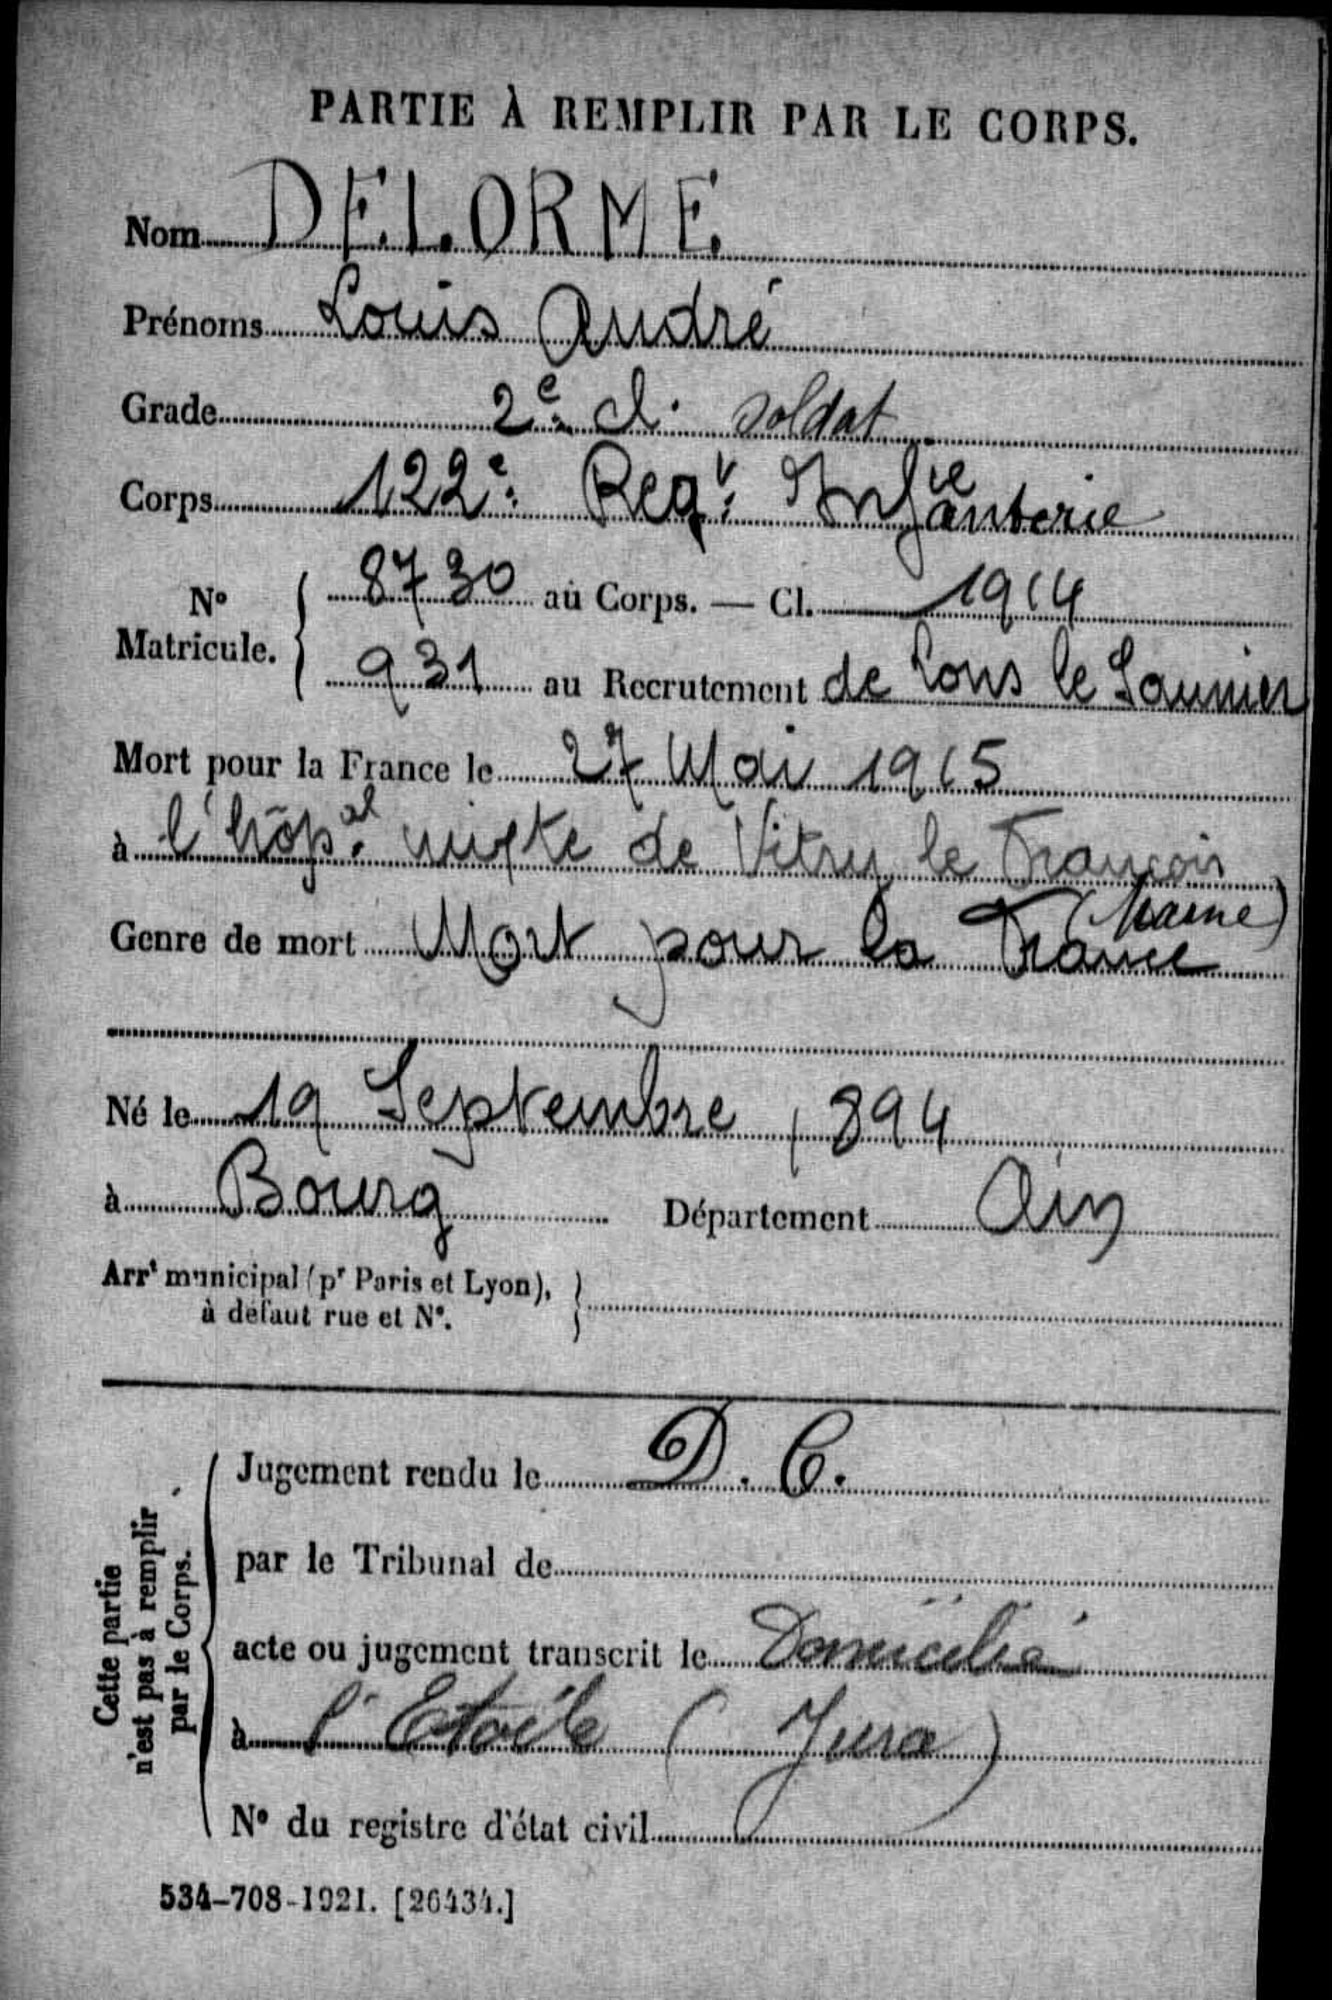 PARTIE À REMPLIR PAR LE CORPS.
Nom DELORME
Prénoms Louis André
Grade 2e cl. soldat
Corps 122e Regt Infanterie
No Matricule. 8730 au Corps. — Cl. 1914
931 au Recrutement de Lons le Saunier
Mort pour la France le 27 Mai 1915
à l'hôpal mixte de Vitry le François
(Marne)
Genre de mort Mort pour la France
Né le 19 Septembre 1894
à Bourg Département Ain
Arrt municipal (pr Paris et Lyon),
à défaut rue et No.
Cette partie
n'est pas à remplir
par le Corps.
Jugement rendu le D. C.
par le Tribunal de
acte ou jugement transcrit le Domicilié
à l'Etoile (Jura)
No du registre d'état civil
534-708-1921. [26434.]